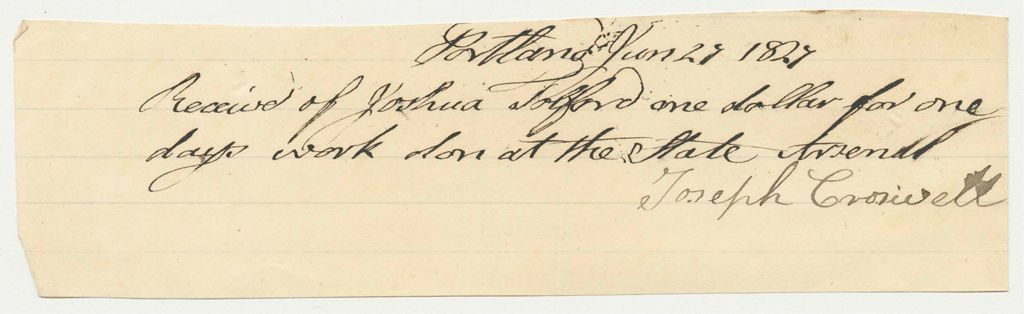 Portland Jun 27 1827
Receivd of Joshua Tolford one dollar for one
days work don at the State Arsenal
Joseph Croswell